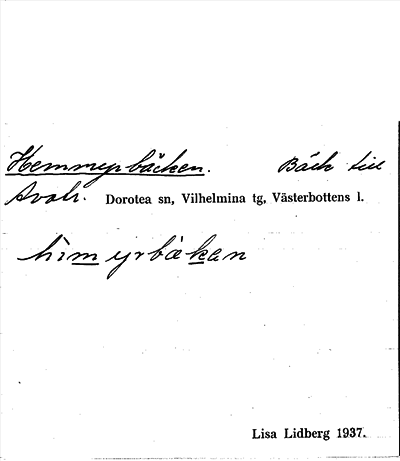 Hemmyrbäcken. Bäck till
Avalr. Dorotea sn, Vilhelmina tg, Västerbottens l.
himyrbäkan
Lisa Lidberg 1937.